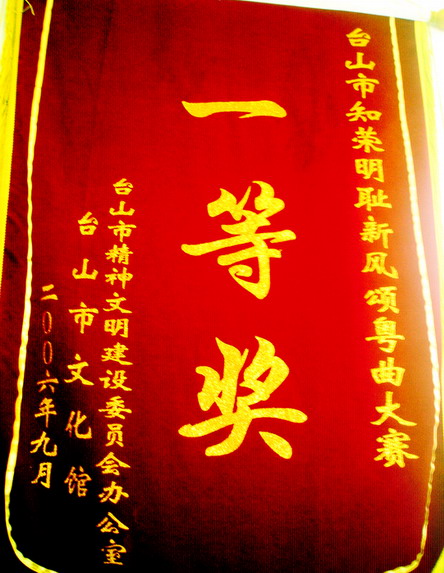 台山市知荣明耻新风颂粤曲大赛
一等奖
台山市精神文明建设委员会办公室
台山市文化馆
二00六年九月